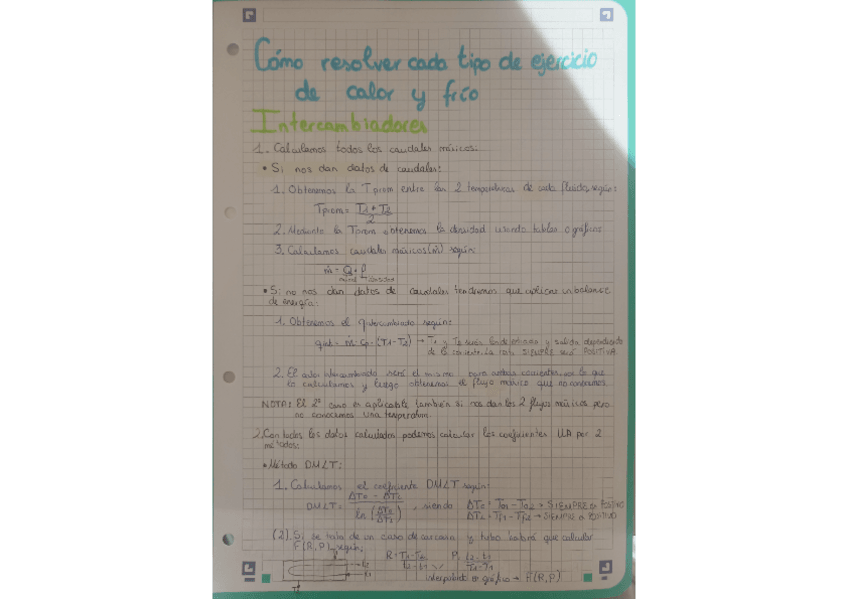 Cómo resolver cada tipo de ejercicio
de calor y frío
Intercambiadores
1. Calculamos todos los caudales másicos:
• Si nos dan datos de caudales:
1. Obtenemos la Tprom entre las 2 temperaturas de cada fluido según:
Tprom = T1 + T2 / 2
2. Mediante la Tprom obtenemos la densidad usando tablas o gráficos
3. Calculamos caudales másicos (ṁ) según:
ṁ = Q · ρ
• Si no nos dan datos de caudales tendremos que aplicar un balance
de energía:
1. Obtenemos el q intercambiado según:
qint = ṁ · cp · (T1 - T2) → T1 y T2 serán entrada y salida dependiendo
de la corriente SIEMPRE será POSITIVA
2. El calor intercambiado será el mismo para ambas corrientes, por lo que
lo calculamos y luego obtenemos el flujo másico que no conocemos.
NOTA: El 2º caso es aplicable también si nos dan los 2 flujos másicos pero
no conocemos una temperatura.
2. Con todos los datos calculados podemos calcular los coeficientes UA por 2
métodos:
• Método DMLT:
1. Calculamos el coeficiente DMLT según:
DMLT = ΔT1 - ΔT2 / ln (ΔT1 / ΔT2) , siendo → SIEMPRE es POSITIVO
→ SIEMPRE es POSITIVO
(2) Si se trata de un caso de carcasa y tubo habrá que calcular
F(R,P), según:
R = T1 - T2 / t2 - t1 P = t2 - t1 / T1 - t1
interpolando en gráfico → F(R,P)